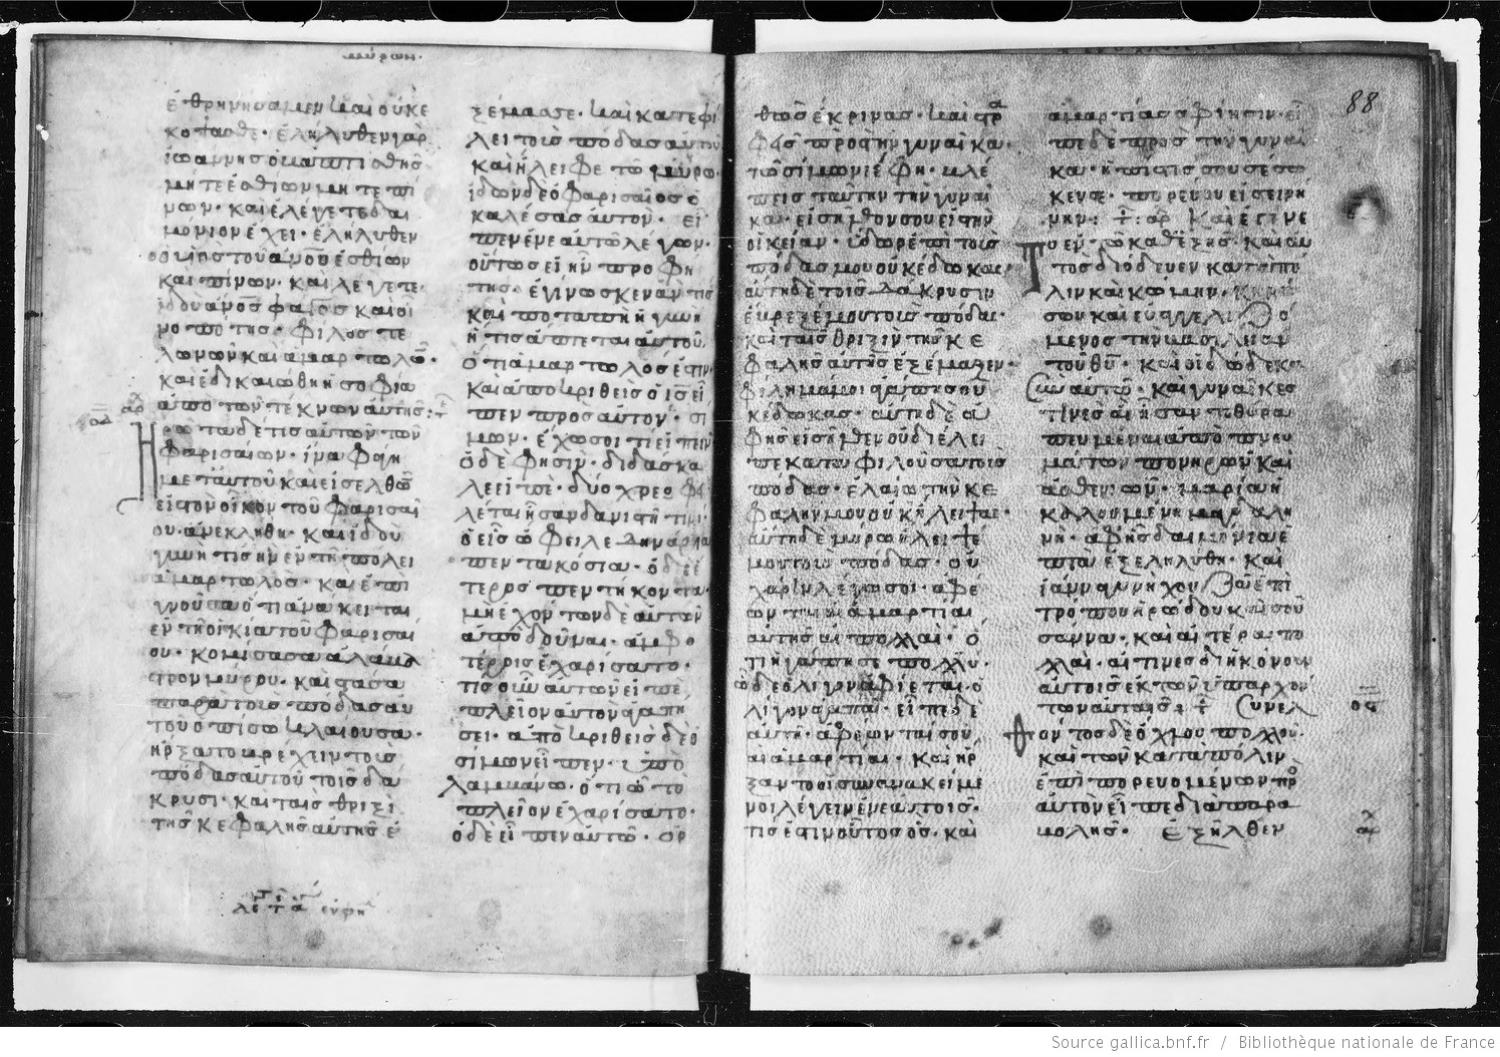 μύρων·
ἐθρηνήσαμεν καὶ οὐκ ἐ
κόψασθε· ἐλήλυθεν γὰρ
ἰωάννης ὁ βαπτιστὴς
μήτε ἐσθίων μήτε πί
νων· καὶ λέγετε δαι
μόνιον ἔχει· ἐλήλυθεν
ὁ υἱὸς τοῦ ἀνου ἐσθίων
καὶ πίνων· καὶ λέγετε·
ἰδοὺ ἀνος φάγος καὶ οἰ
νοπότης· φίλος τε
λωνῶν καὶ ἁμαρτωλῶ·
καὶ ἐδικαιώθη ἡ σοφία
ἀπὸ τῶν τέκνων αὐτῆς:
Ηρώτα δέ τις αὐτῶν τῶν
φαρισαίων· ἵνα φάγη
μετ αὐτοῦ καὶ εἰσελθὼ
εἰς τὸν οἶκον τοῦ φαρισαί
ου· ἀνεκλήθη· καὶ ἰδοὺ
γυνή τις ἦν ἐν τῆ πόλει
ἁμαρτωλός· καὶ ἐπι
γνοῦσα ὅτι ἀνάκειται
ἐν τῆ οἰκία τοῦ φαρισαί
ου· κομίσασα ἀλάβα
στρον μύρου· καὶ στᾶσα
παρὰ τοὺς πόδας αὐ
τοῦ ὀπίσω κλαίουσα·
ἤρξατο βρέχειν τοὺς
πόδας αὐτοῦ τοῖς δά
κρυσι· καὶ ταῖς θριξὶ
τῆς κεφαλῆς αὐτῆς ἐ
ξέμασσε· καὶ κατεφί
λει τοὺς πόδας αὐτοῦ
καὶ ἤλειφε τῶ μύρω·
ἰδὼν δὲ ὁ φαρισαῖος ὁ
καλέσας αὐτόν· εἶ
πεν ἐν ἑαυτῶ λέγων·
οὗτος εἰ ἦν προφή
της· ἐγίνωσκεν ἂν τίς
καὶ ποταπὴ ἡ γυνὴ
ἥτις ἅπτεται αὐτοῦ,
ὅτι ἁμαρτωλός ἐστιν·
καὶ ἀποκριθεὶς ὁ ις εἶ
πεν πρὸς αὐτόν· σί
μων· ἔχω σοί τι εἰπεῖν
ὁ δὲ φησίν· διδάσκα
λε εἰπέ· δύο χρεοφει
λέται ἦσαν δανιστῆ τινί·
ὁ εἷς ὤφειλε δηνάρια
πεντακόσια· ὁ δὲ ἕ
τερος πεντήκοντα·
μὴ ἐχόντων δὲ αὐτῶν
ἀποδοῦναι· ἀμφο
τέροις ἐχαρίσατο·
τίς οὖν αὐτῶν εἰπὲ,
πλεῖον αὐτὸν ἀγαπή
σει· ἀποκριθεὶς δὲ ὁ
σίμων εἶπεν· ὑπο
λαμβάνω· ὅτι ὧ τὸ
πλεῖον ἐχαρίσατο·
ὁ δὲ εἶπεν αὐτῶ· ὀρ
θῶς ἔκρινας· καὶ στρα
φεὶς πρὸς τὴν γυναῖκα·
τῶ σίμωνι ἔφη· βλέ
πεις ταύτην τὴν γυναῖ
κα· εἰσῆλθόν σου εἰς τὴν
οἰκείαν· ὕδωρ ἐπὶ τοὺς
πόδας μου οὐκ ἔδωκας
αὕτη δὲ τοῖς δάκρυσιν
ἔβρεξέ μου τοὺς πόδας·
καὶ ταῖς θριξὶν τῆς κε
φαλῆς αὐτῆς ἐξέμαξεν·
φίλημά μοι ἀγάπης οὐ
κ ἔδωκας· αὕτη δὲ ἀ
φ ἧς εἰσῆλθεν οὐ διέλει
πε καταφιλοῦσα τοὺς
πόδας· ἐλαίω τὴν κε
φαλήν μου οὐκ ἤλειψας·
αὕτη δὲ μύρω ἤλειψέ
μου τοὺς πόδας· οὗ
χάριν λέγω σοι· ἀφέ
ωνται αἱ ἁμαρτίαι
αὐτῆς αἱ πολλαί· ὅ
τι ἠγάπησε πολλύ·
ὧ δὲ ὀλίγον ἀφίεται· ὀ
λίγον ἀγαπᾶ· εἶπε δὲ
αὐτῆ· ἀφέωνταί σου
αἱ ἁμαρτίαι· καὶ ἤρ
ξαντο οἱ συνανακείμε
νοι λέγειν ἐν ἑαυτοῖς·
τίς ἐστιν οὗτος ὃς· καὶ
88
ἁμαρτίας ἀφίησιν· εἶ
πε δὲ πρὸς τὴν γυναῖ
κα· ἡ πίστις σου σέσω
κέν σε· πορεύου εἰς εἰρή
νην: ἀρ Καὶ ἐγένε
Το ἐν τῶ καθεξῆς· καὶ αὐ
τὸς διόδευεν κατὰ πό
λιν καὶ κώμην· κηρύσ
σων καὶ εὐαγγελιζό
μενος τὴν βασιλείαν
τοῦ θυ· καὶ οἱ δώδεκα
σὺν αὐτῶ· καὶ γυναῖκες
τινὲς αἳ ἦσαν τεθερα
πευμέναι ἀπὸ πνευ
μάτων πονηρῶν καὶ
ἀσθενειῶν· μαρία ἡ
καλουμένη μαγδαλη
νή· ἀφ ἧς δαιμόνια ἑ
πτὰ ἐξεληλύθη· καὶ
ἰάννα γυνὴ χουζᾶ ἐπι
τρόπου ἡρώδου καὶ σου
σάννα· καὶ ἕτεραι πο
λλαί· αἵτινες διηκόνουν
αὐτοῖς ἐκ τῶν ὑπαρχόν
των αὐταῖς: Συνελ
θόντος δὲ ὄχλου πολλοῦ·
καὶ τῶν κατὰ πόλιν
ἐπιπορευομένων πρὸς
αὐτὸν εἶπε διὰ παρα
βολῆς· ἐξῆλθεν